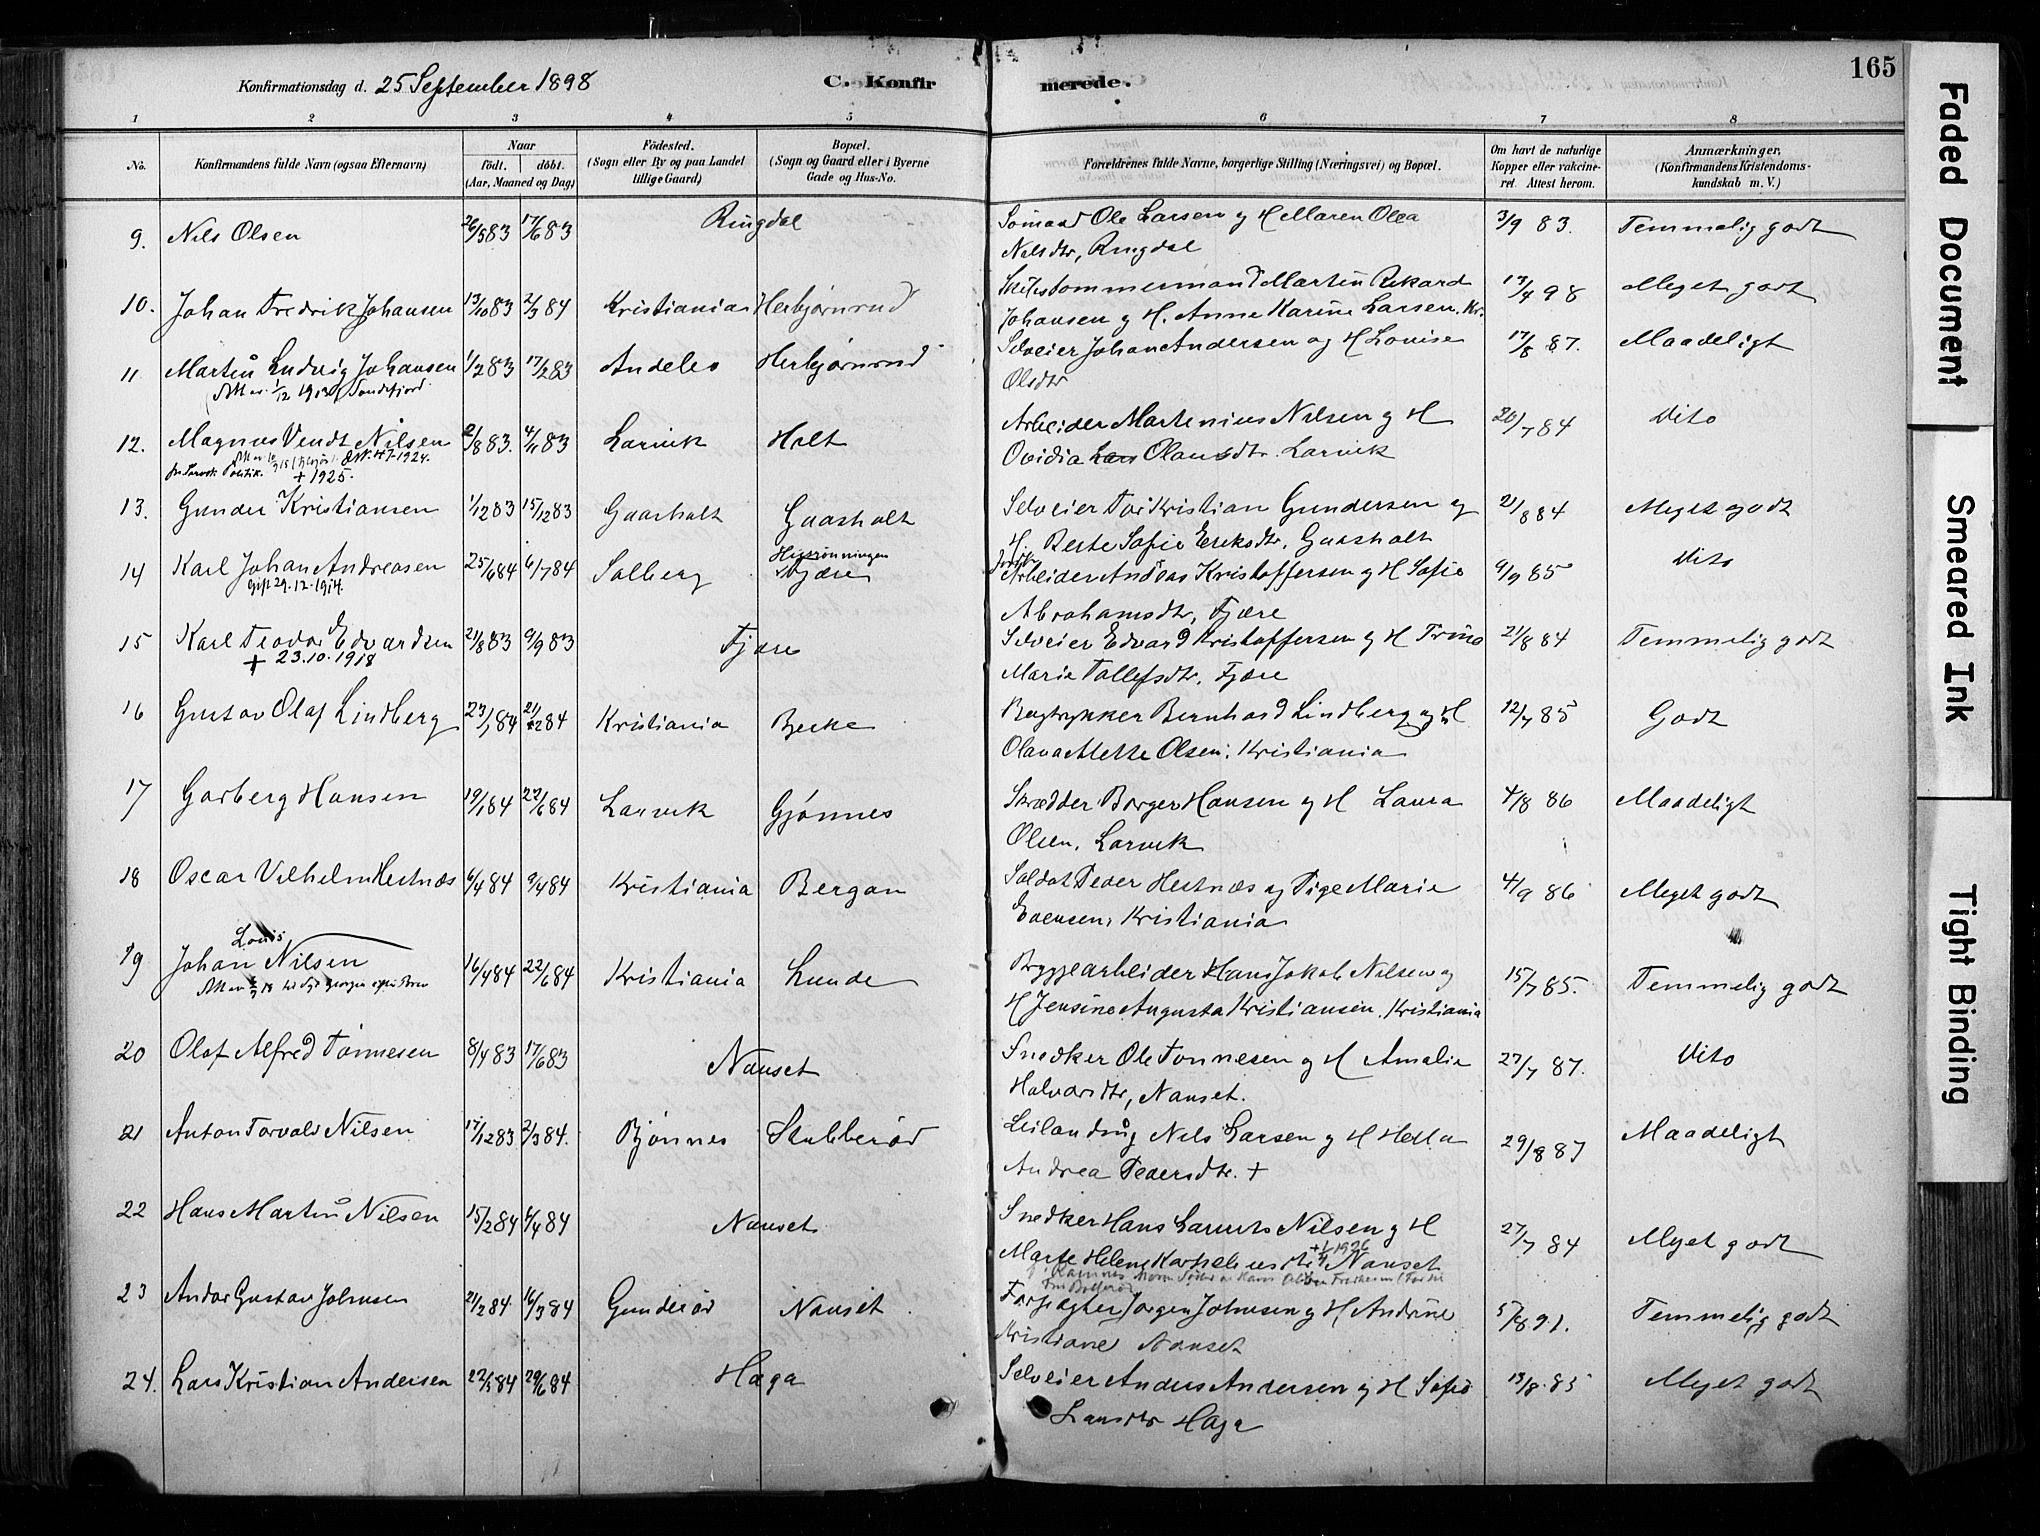 Konfirmationsdag d. 25 September 1898
C. Konfirmerede.
165
1 2 3 4 5 6 7 8
No.
Konfirmandens fulde Navn (ogsaa Efternavn)
Naar
födt. döbt.
(Aar, Maaned og Dag)
Födested.
(Sogn eller By og paa Landet
tillige Gaard)
Bopæl.
(Sogn og Gaard eller i Byerne
Gade og Hus-No.
Forældrenes fulde Navne, borgerlige Stilling (Næringsvei) og Bopæl.
Om havt de naturlige
Kopper eller vakcine-
ret Attest herom.
Anmærkninger,
(Konfirmandens Kristendoms-
kundskab m. V.)
9. Nils Olsen 26/5 83 17/6 83 Ringdal Sömand Ole Larsen og H Maren Olea 3/9 83. Temmelig godt
Nilsdtr, Ringdal
10. Johan Fredrik Johansen 13/10 83 2/3 84 Kristiania Herbjørnrud Skibstømmermand Martin Rikard 17/4 98 Meget godt
Johansen og H. Anne Karine Larsen. Kr.
11. Martin Ludvig Johansen 1/2 83 17/2 83 Andebo Herbjørnrud Selveier Johan Andersen og H Lovise 17/8 87. Maadeligt
1/12 1903 Sandefjord
Olsdtr
12. Magnus Vendt Nilsen 2/8 83. 4/11 83 Larvik Holt Arbeider Martenius Nilsen og H 30/7 84 Dito
+ 1925.
Ovidia Olausdtr. Larvik
13. Gunder Kristiansen 1/12 83 15/12 83 Gaasholt Gaasholt Selveier Tor Kristian Gundersen og 21/8 84 Meget godt
H. Berte Sofie Eriksdtr, Gaasholt
14 Karl Johan Andreasen 25/6 84 6/7 84 Solberg Fjære Arbeider Andreas Kristoffersen og H Sofie 9/9 85 Dito
Gift 29.12.1914.
Abrahamsdtr, Fjære
15 Karl Teodor Edvardsen 21/8 83 9/9 83 Fjære Selveier Edvard Kristoffersen og H Trine 21/8 84 Temmelig godt
+ 23.10.1918
Marie Tollefsdtr, Fjære
16 Gustav Olaf Lindberg 23/1 84 21/2 84 Kristiania Bekke Bogtrykker Bernhard Lindberg og H 12/7 85 Godt
Olava Mette Olsen, Kristiania
17 Garberg Hansen 19/1 84 22/6 84 Larvik Gjønnes Skrædder Borger Hansen og H Laura 4/8 86 Maadeligt
Olsen, Larvik
18 Oscar Vilhelm Hestnæs 6/4 84 9/4 84 Kristiania Bergan Soldat Peder Hestnæs og Pige Marie 4/9 86 Meget godt
Evensen, Kristiania
Louis
19 Johan Nilsen 16/4 84 22/6 84 Kristiania Lunde Bryggearbeider Hans Jakob Nilsen og 15/7 85. Temmelig godt
H Jensine Augusta Kristiansen. Kristiania
20 Olaf Alfred Tönnesen 8/4 83 17/6 83 Nanset Snedker Ole Tonnesen og H Amalie 27/7 87. Dito
Halvorsdtr, Nanset.
21 Anton Torvald Nilsen 17/12 83 2/3 84. Bjönnes Stubberød Leilanding Nils Larsen og H Hella 29/8 87 Maadeligt
Andrea Pedersdtr. +
22 Hans Martin Nilsen 15/2 84 6/4 84 Nanset Snedker Hans Laurits Nilsen og H 27/7 84 Meget godt
Marte Helene Nanset
23 Andor Gustav Johnsen 21/2 84 16/3 84 Gunderød Nanset Forpagter Jørgen Johnsen og H Andrine 5/8 91. Temmelig godt
Kristiane Nanset
24. Lars Kristian Andersen 22/5 84 29/6 84 Haga Selveier Anders Andersen og H Sofie 13/8 85 Meget godt
Larsdtr Haga
Faded Document
Smeared Ink
Tight Binding